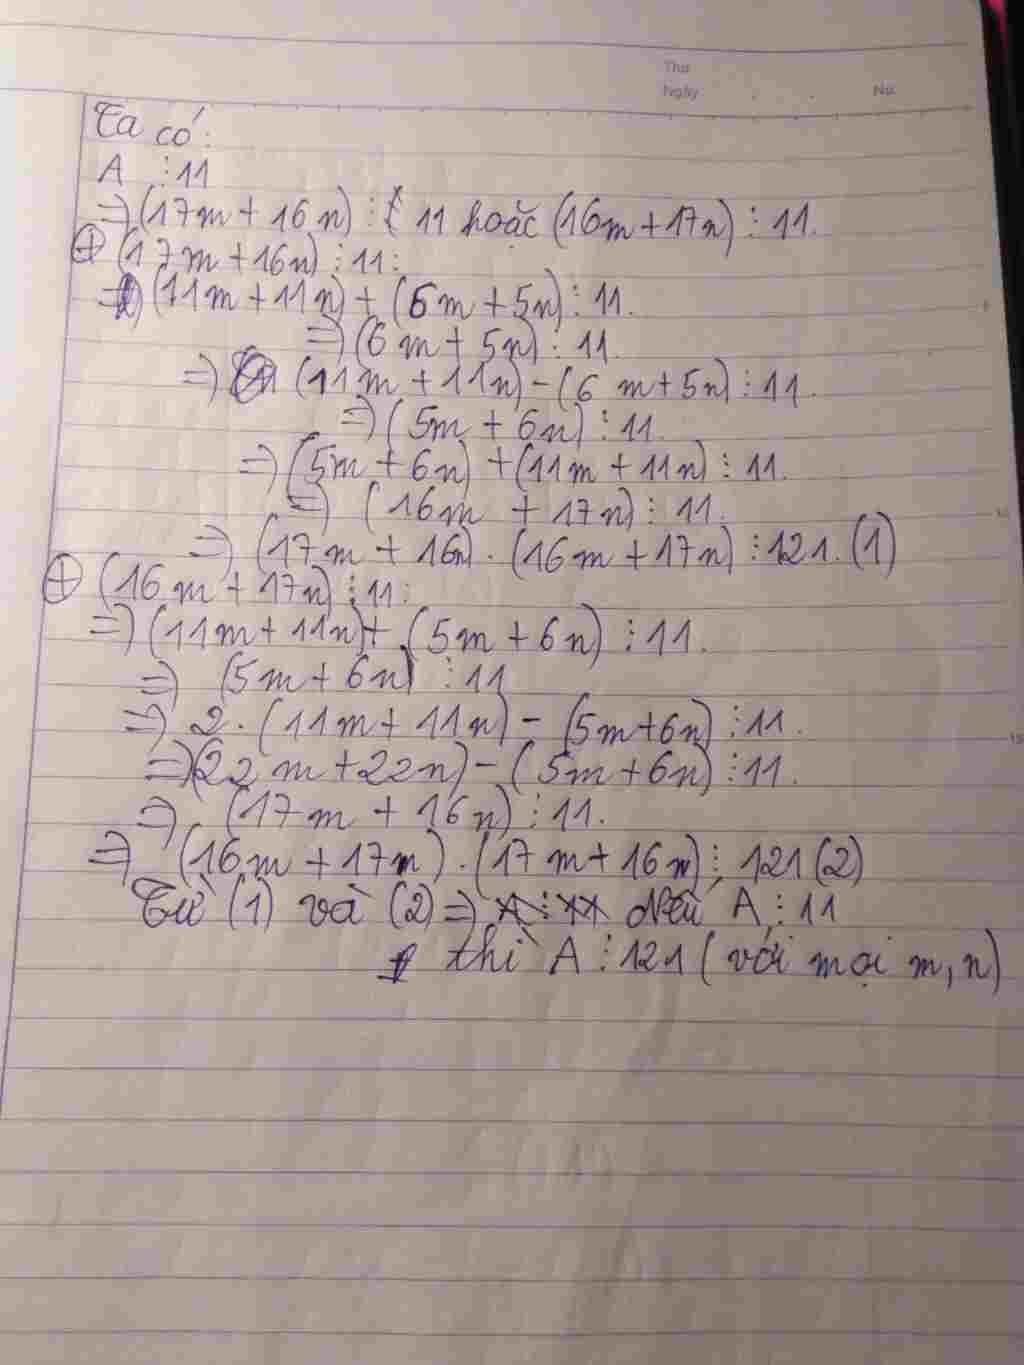 Thứ
Ngày . . No.
Ta có:
A ⋮ 11
=> (17m + 16n) ⋮ 11 hoặc (16m + 17n) ⋮ 11.
⊕ (17m + 16n) ⋮ 11:
=> (11m + 11n) + (6m + 5n) ⋮ 11.
=> (6m + 5n) ⋮ 11.
=> (11m + 11n) - (6m + 5n) ⋮ 11.
=> (5m + 6n) ⋮ 11.
=> (5m + 6n) + (11m + 11n) ⋮ 11.
=> (16m + 17n) ⋮ 11.
=> (17m + 16n) . (16m + 17n) ⋮ 121. (1)
⊕ (16m + 17n) ⋮ 11:
=> (11m + 11n) + (5m + 6n) ⋮ 11.
=> (5m + 6n) ⋮ 11
=> 2. (11m + 11n) - (5m + 6n) ⋮ 11.
=> (22m + 22n) - (5m + 6n) ⋮ 11.
=> (17m + 16n) ⋮ 11.
=> (16m + 17n) . (17m + 16n) ⋮ 121 (2)
Từ (1) và (2) => Nếu A ⋮ 11
thì A ⋮ 121 (với mọi m, n)